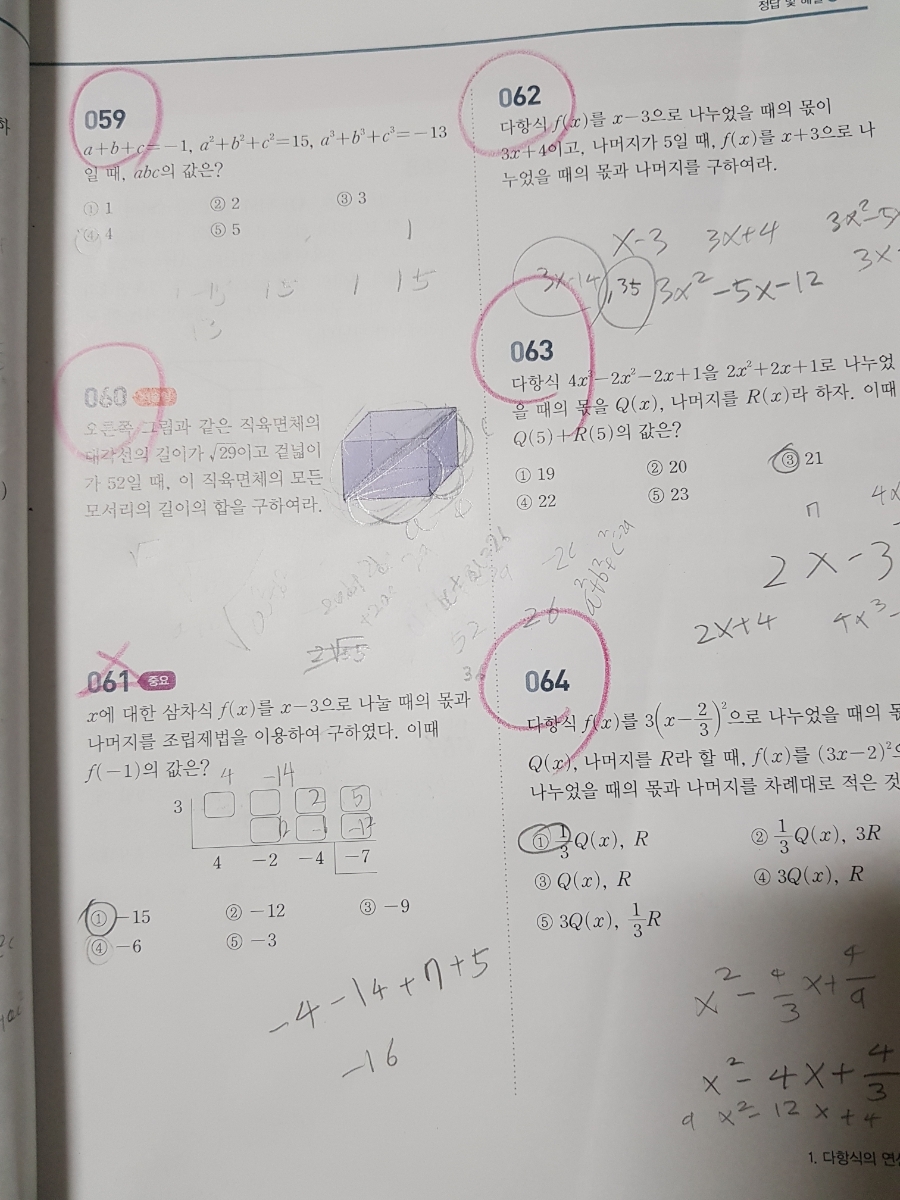 정답 및 해설
059
a+b+c=-1, a²+b²+c²=15, a³+b³+c³=-13
일 때, abc의 값은?
① 1 ② 2 ③ 3
④ 4 ⑤ 5
1
1 15
13
060
오른쪽 그림과 같은 직육면체의
대각선의 길이가 √29이고 겉넓이
가 52일 때, 이 직육면체의 모든
모서리의 길이의 합을 구하여라.
52 26
061 중요
x에 대한 삼차식 f(x)를 x-3으로 나눌 때의 몫과
나머지를 조립제법을 이용하여 구하였다. 이때
f(-1)의 값은?
4 -14
3 2 5
4 -2 -4 -7
① -15 ② -12 ③ -9
④ -6 ⑤ -3
-4-14+7+5
-16
062
다항식 f(x)를 x-3으로 나누었을 때의 몫이
3x+4이고, 나머지가 5일 때, f(x)를 x+3으로 나
누었을 때의 몫과 나머지를 구하여라.
x-3 3x+4 3x²-5x
3x-14 , 35 3x²-5x-12 3x
063
다항식 4x³-2x²-2x+1을 2x²+2x+1로 나누었
을 때의 몫을 Q(x), 나머지를 R(x)라 하자. 이때
Q(5)+R(5)의 값은?
① 19 ② 20 ③ 21
④ 22 ⑤ 23
7 4x
2x-3
2x+4 4x³-
a²+b²+c²=29
064
다항식 f(x)를 3(x-2/3)²으로 나누었을 때의 몫
Q(x), 나머지를 R라 할 때, f(x)를 (3x-2)²으
나누었을 때의 몫과 나머지를 차례대로 적은 것
① 1/3Q(x), R ② 1/3Q(x), 3R
③ Q(x), R ④ 3Q(x), R
⑤ 3Q(x), 1/3R
x²-4/3x+4/9
x²-4x+4/3
9x²-12x+4
1. 다항식의 연산